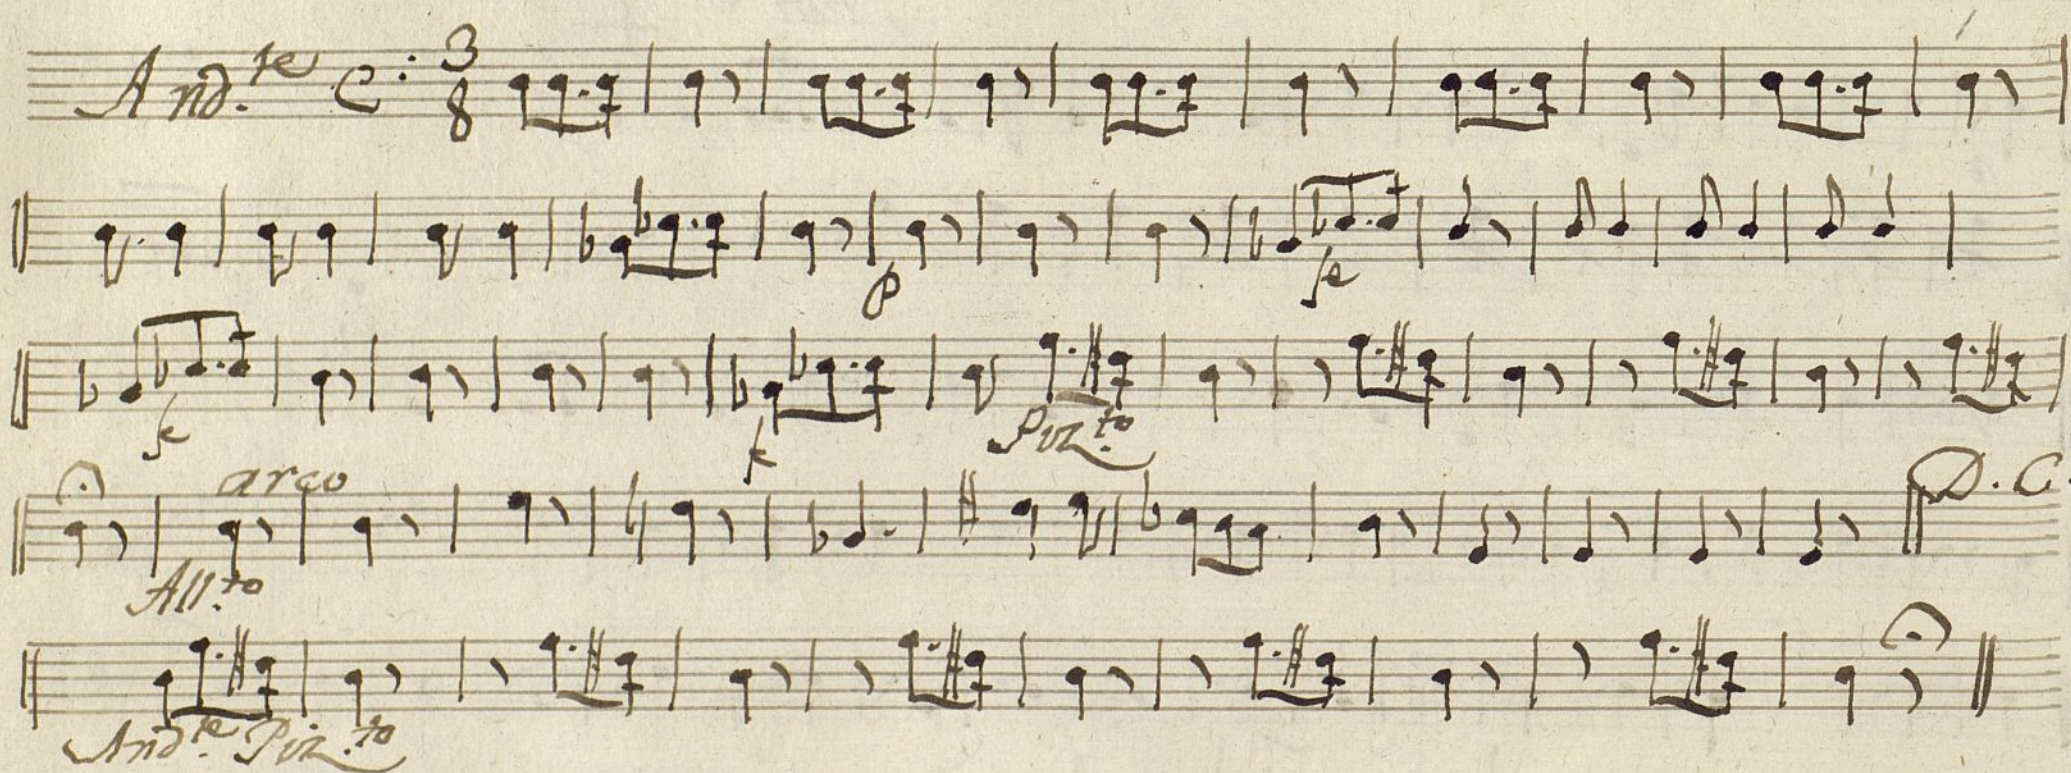 And.te C: 3 8
p fe
fe f Piz.to
arco D.C.
All.to
And.te Piz.to